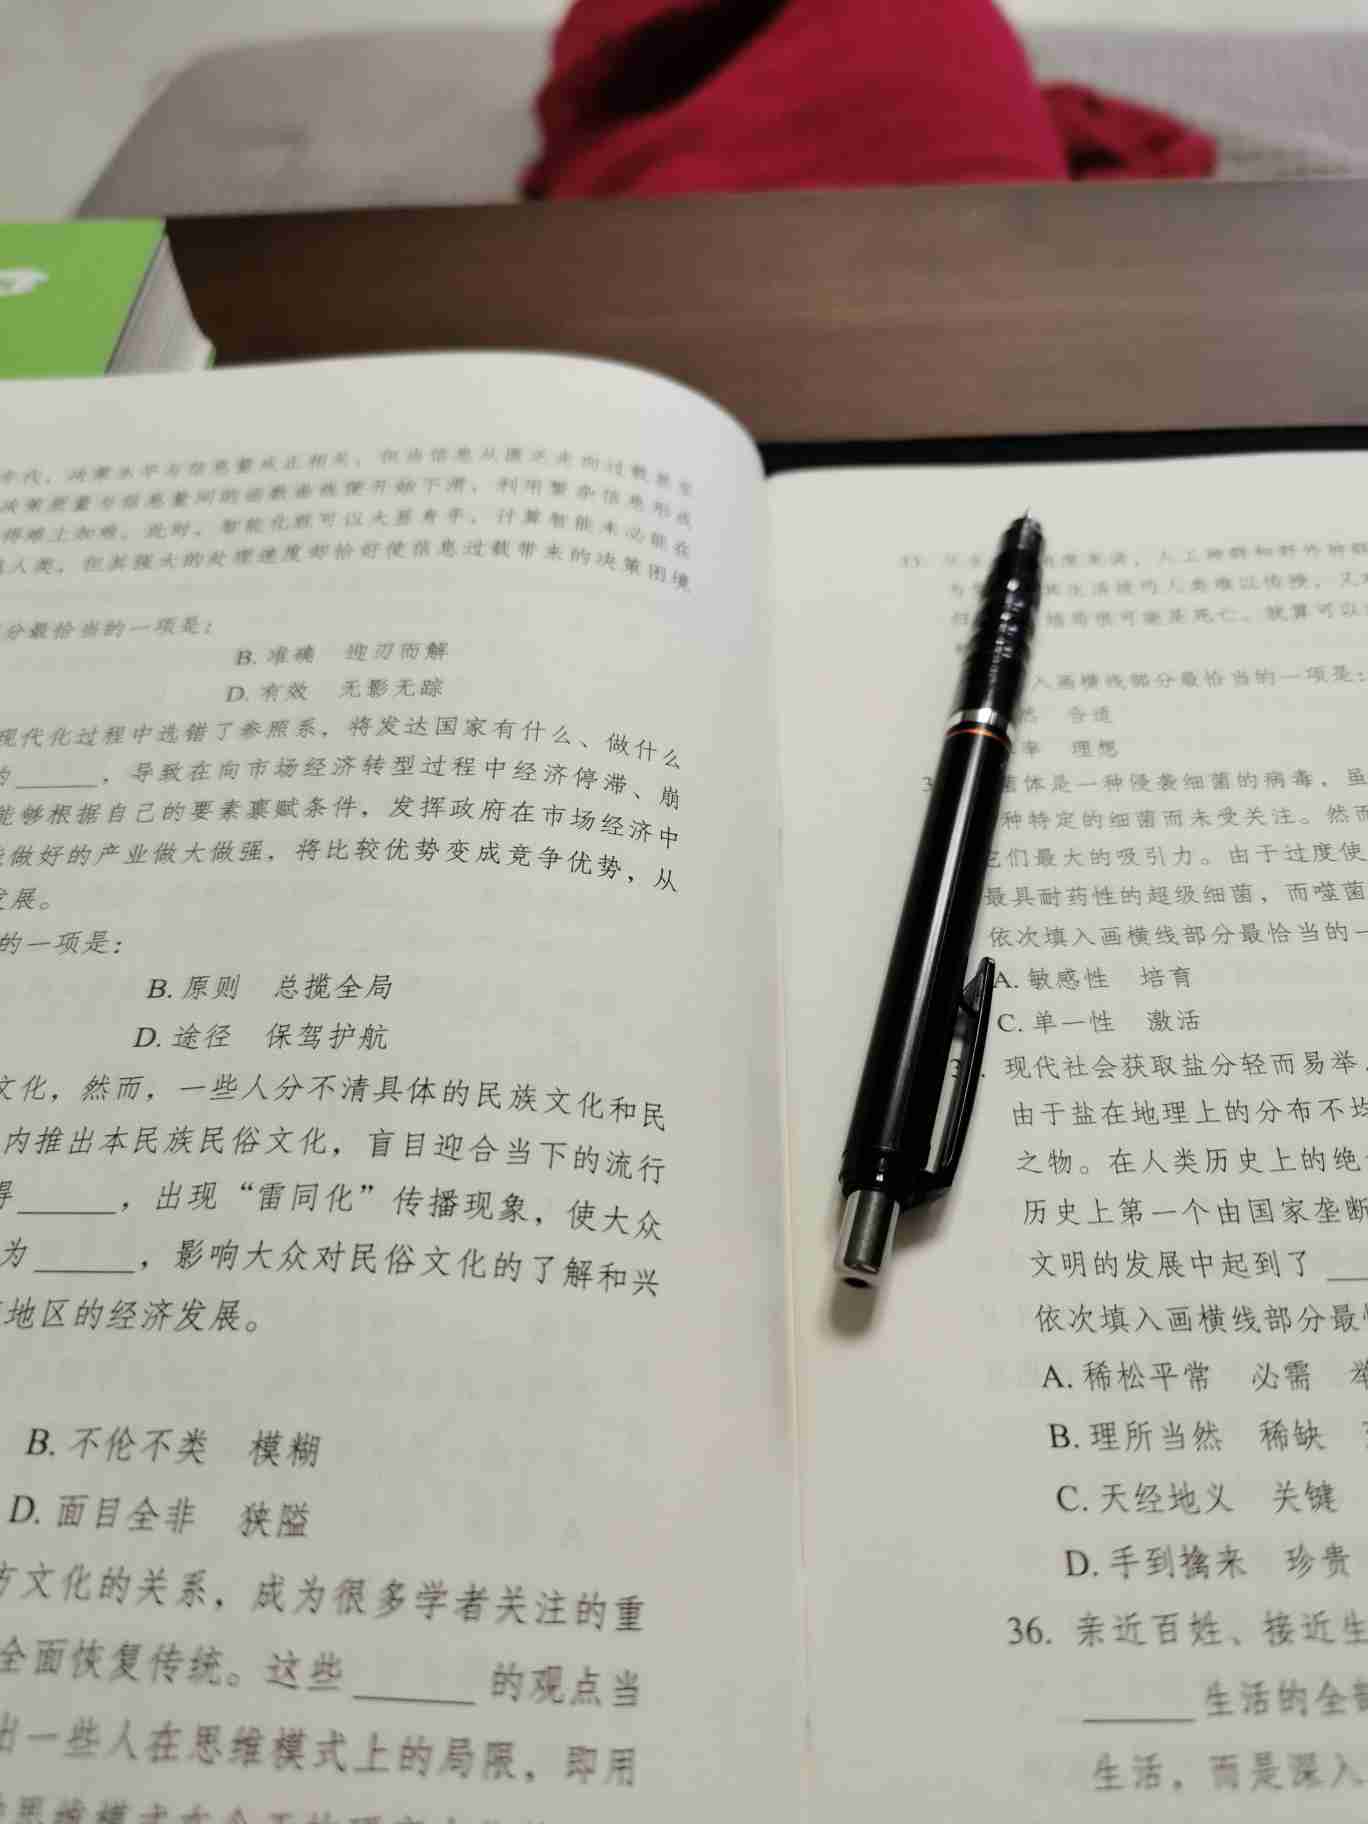 决策水平与信息量成正相关，但当信息从匮乏走向过载甚至
决策质量与信息量间的函数曲线便开始下滑，利用繁杂信息形成
得难上加难。此时，智能化就可以大显身手，计算智能未必能在
人类，但其强大的处理速度却恰好使信息过载带来的决策困境
分最恰当的一项是：
B. 准确 迎刃而解
D. 有效 无影无踪
现代化过程中选错了参照系，将发达国家有什么、做什么
______，导致在向市场经济转型过程中经济停滞、崩
能够根据自己的要素禀赋条件，发挥政府在市场经济中
做好的产业做大做强，将比较优势变成竞争优势，从
发展。
的一项是：
B. 原则 总揽全局
D. 途径 保驾护航
文化，然而，一些人分不清具体的民族文化和民
内推出本民族民俗文化，盲目迎合当下的流行
得______，出现“雷同化”传播现象，使大众
为______，影响大众对民俗文化的了解和兴
地区的经济发展。
B. 不伦不类 模糊
D. 面目全非 狭隘
方文化的关系，成为很多学者关注的重
全面恢复传统。这些______的观点当
出一些人在思维模式上的局限，即用
来说，人工种群和野外种群
其生活技巧人类难以传授，又
结局很可能是死亡。就算可以
入画横线部分最恰当的一项是：
然 合适
率 理想
菌体是一种侵袭细菌的病毒，虽
种特定的细菌而未受关注。然而
它们最大的吸引力。由于过度使
最具耐药性的超级细菌，而噬菌
依次填入画横线部分最恰当的一
A. 敏感性 培育
C. 单一性 激活
现代社会获取盐分轻而易举
由于盐在地理上的分布不均
之物。在人类历史上的绝
历史上第一个由国家垄断
文明的发展中起到了___
依次填入画横线部分最
A. 稀松平常 必需
B. 理所当然 稀缺
C. 天经地义 关键
D. 手到擒来 珍贵
36. 亲近百姓、接近生
______生活的全部
生活，而是深入